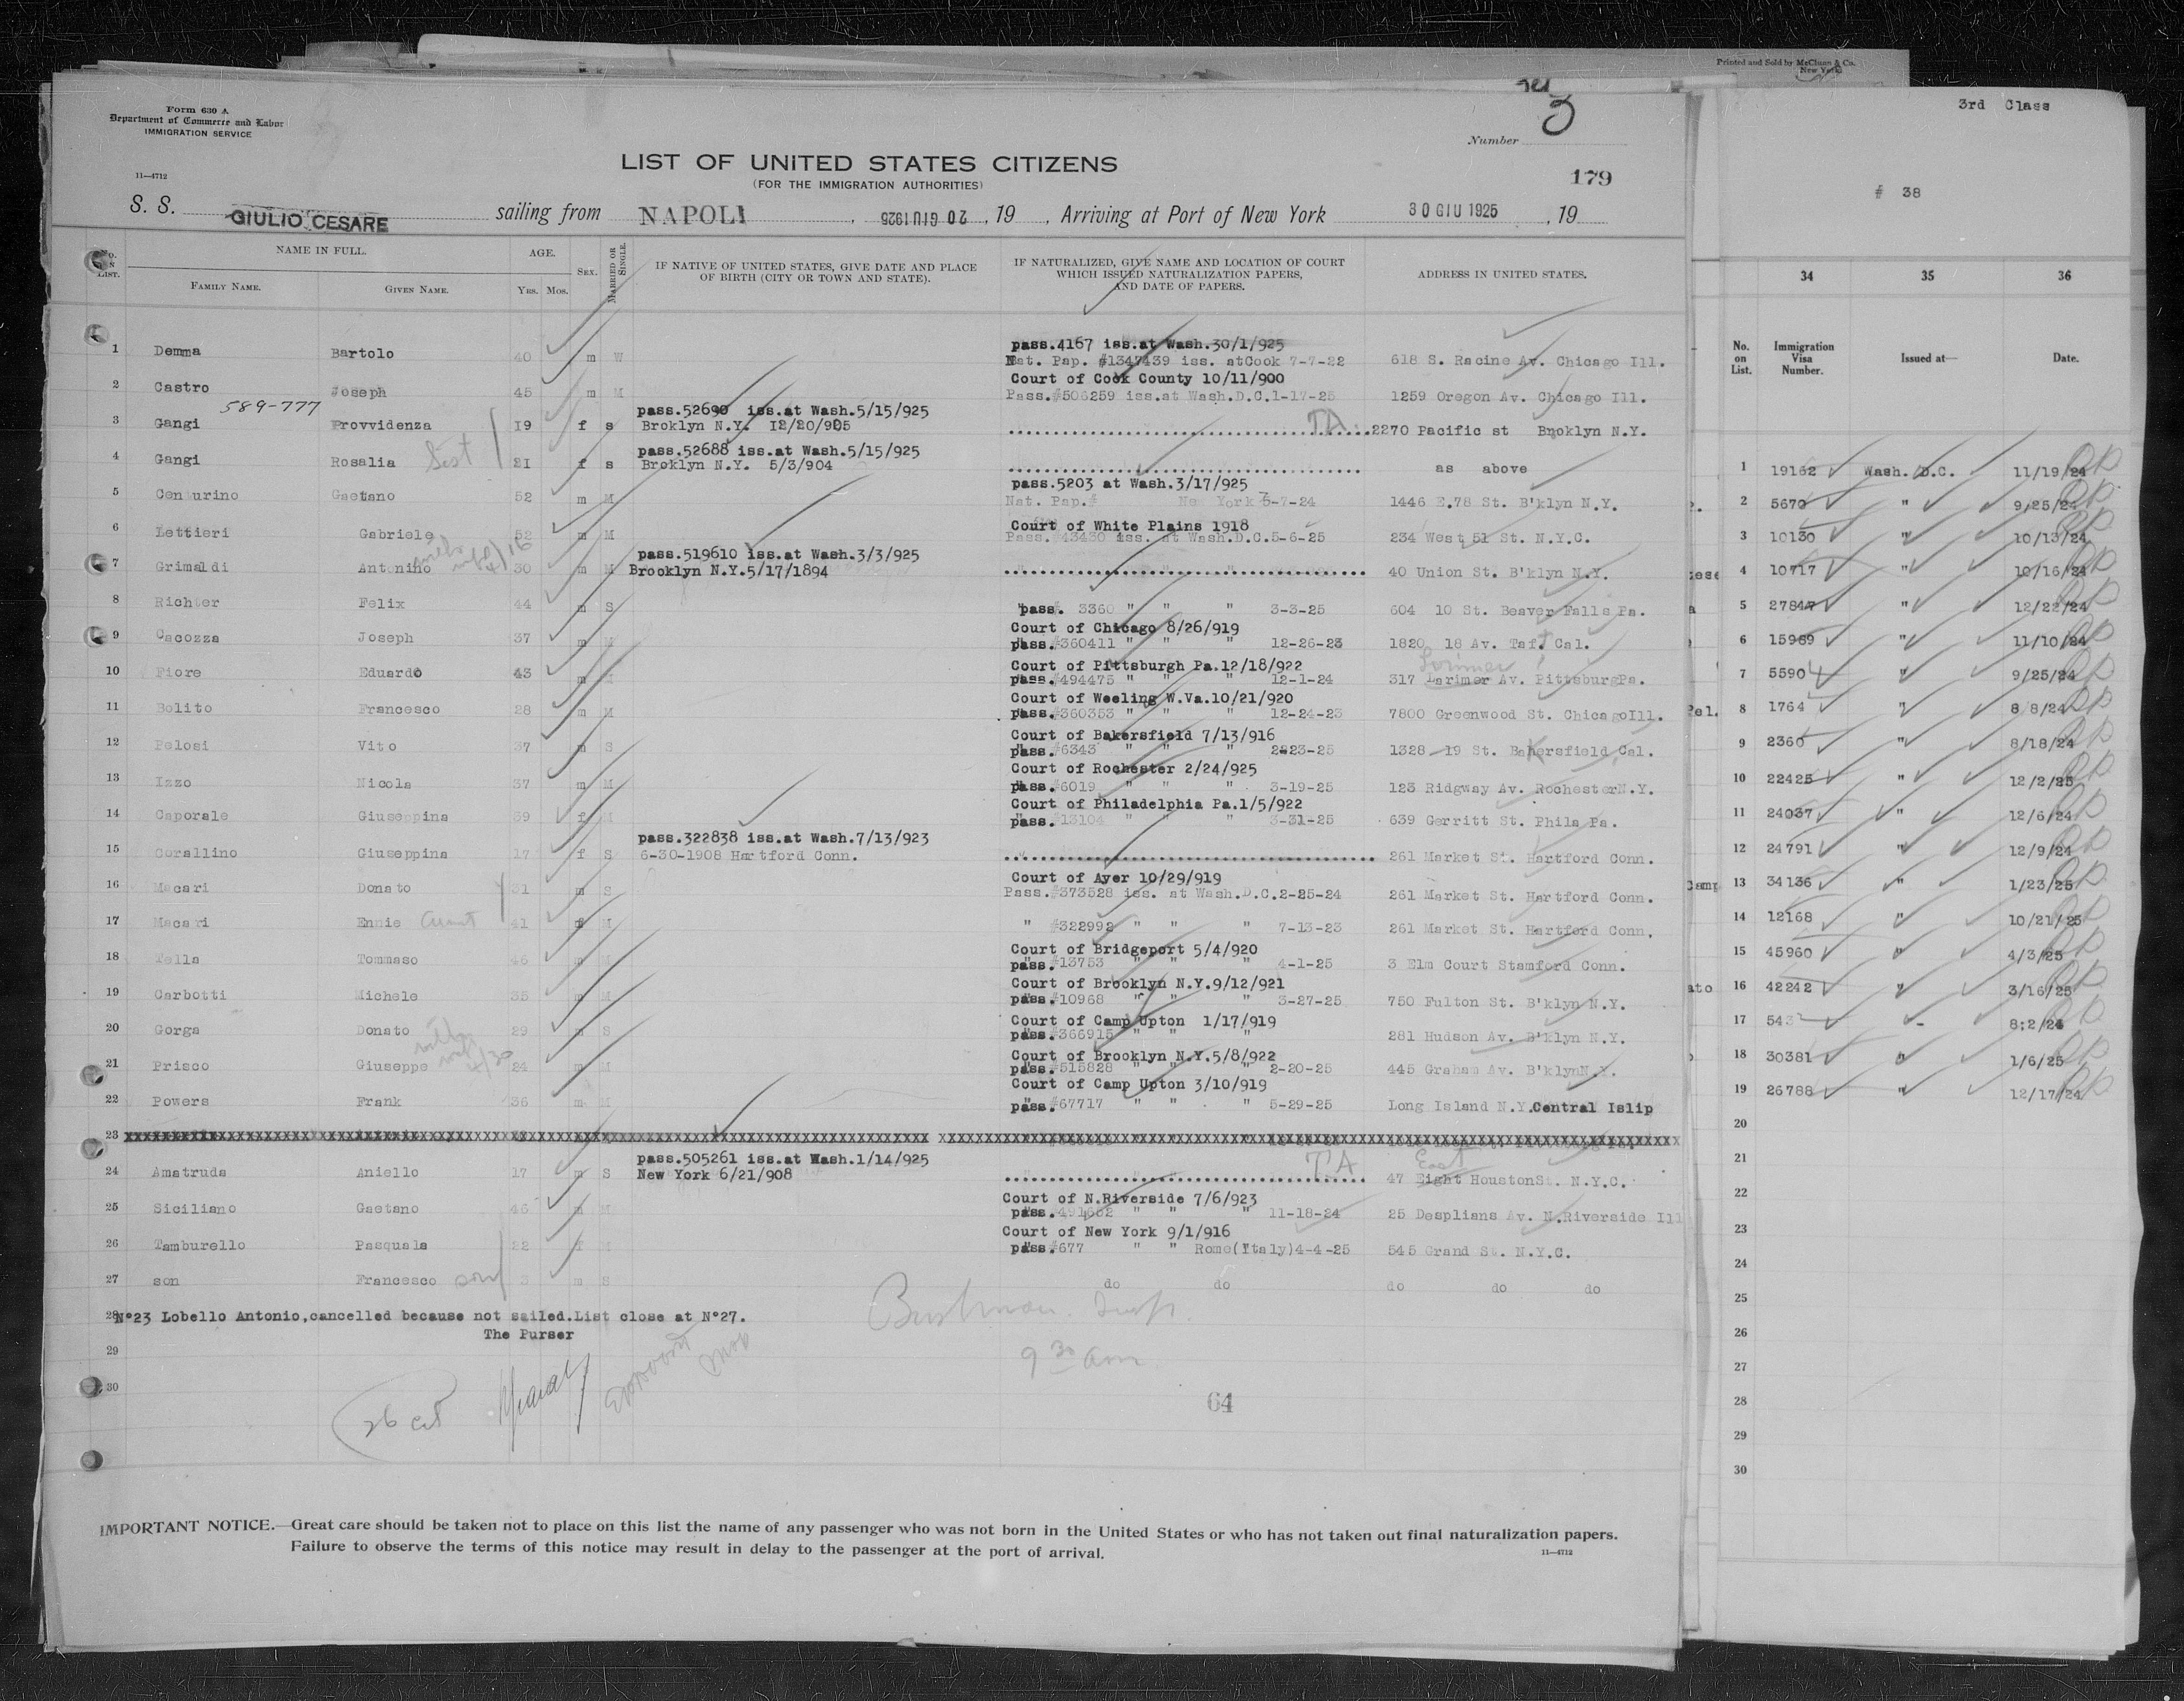 Printed and Sold by McClunn & Co.
New York
3rd Class
Form 630 A
Department of Commerce and Labor
IMMIGRATION SERVICE
11—4712
Number 3
LIST OF UNITED STATES CITIZENS
(FOR THE IMMIGRATION AUTHORITIES)
179
# 38
S. S. GIULIO CESARE sailing from NAPOLI, 20 GIU 1925, 19 , Arriving at Port of New York 30 GIU 1925, 19
NO. ON LIST. NAME IN FULL. AGE. SEX. MARRIED OR SINGLE. IF NATIVE OF UNITED STATES, GIVE DATE AND PLACE OF BIRTH (CITY OR TOWN AND STATE). IF NATURALIZED, GIVE NAME AND LOCATION OF COURT WHICH ISSUED NATURALIZATION PAPERS, AND DATE OF PAPERS. ADDRESS IN UNITED STATES.
FAMILY NAME. GIVEN NAME. YRS. MOS.
pass.4167 iss.at Wash.30/1/925
1 Demma Bartolo 40 m W Nat. Pap. #1347439 iss. atCook 7-7-22 618 S. Racine Av. Chicago Ill.
Court of Cook County 10/11/900
2 Castro Joseph 45 m M Pass.#506259 iss.at Wash.D.C.1-17-25 1259 Oregon Av. Chicago Ill.
589-777 pass.52690 iss.at Wash.5/15/925
3 Gangi Provvidenza 19 f s Broklyn N.Y. 12/20/905 TA 2270 Pacific st Broklyn N.Y.
pass.52688 iss.at Wash.5/15/925
4 Gangi Rosalia Sist 21 f s Broklyn N.Y. 5/3/904 as above
pass.5203 at Wash.3/17/925
5 Centurino Gaetano 52 m M Nat. Pap.# New York 5-7-24 1446 E.78 St. B'klyn N.Y.
Court of White Plains 1918
6 Lettieri Gabriele 52 m M Pass.#43430 iss. at Wash.D.C.5-6-25 234 West 51 St. N.Y.C.
pass.519610 iss.at Wash.3/3/925
7 Grimaldi Antonino 30 m M Brooklyn N.Y.5/17/1894 40 Union St. B'klyn N.Y.
8 Richter Felix 44 m S pass. 3360 " " " 3-3-25 604 10 St. Beaver Falls Pa.
Court of Chicago 8/26/919
9 Cacozza Joseph 37 m M pass.#360411 " " " 12-26-23 1820 18 Av. Taft Cal.
Court of Pittsburgh Pa.12/18/922 Lorimer
10 Fiore Eduardo 43 m M pass.#494475 " " " 12-1-24 317 Larimer Av. PittsburgPa.
Court of Weeling W.Va.10/21/920
11 Bolito Francesco 28 m M pass.#360353 " " " 12-24-23 7800 Greenwood St. ChicagoIll.
Court of Bakersfield 7/13/916
12 Pelosi Vito 37 m S pass.#6343 " " " 2-23-25 1328 19 St. Bakersfield Cal.
Court of Rochester 2/24/925
13 Izzo Nicola 37 m M pass.#6019 " " " 3-19-25 123 Ridgway Av. RochesterN.Y.
Court of Philadelphia Pa.1/5/922
14 Caporale Giuseppina 39 f M pass.#13104 " " " 3-31-25 639 Gerritt St. Phila Pa.
pass.322838 iss.at Wash.7/13/923
15 Corallino Giuseppina 17 f S 6-30-1908 Hartford Conn. 261 Market St. Hartford Conn.
Court of Ayer 10/29/919
16 Macari Donato 31 m S Pass.#373528 iss. at Wash.D.C.2-25-24 261 Market St. Hartford Conn.
17 Macari Ennie Aunt 41 f M " #322992 " " " 7-13-23 261 Market St. Hartford Conn.
Court of Bridgeport 5/4/920
18 Tella Tommaso 46 m M pass.#13753 " " " 4-1-25 3 Elm Court Stamford Conn.
Court of Brooklyn N.Y.9/12/921
19 Carbotti Michele 35 m M pass.#10968 " " " 3-27-25 750 Fulton St. B'klyn N.Y.
Court of Camp Upton 1/17/919
20 Gorga Donato 29 m S pass.#366915 " " " 281 Hudson Av. B'klyn N.Y.
Court of Brooklyn N.Y.5/8/922
21 Prisco Giuseppe 24 m M pass.#515828 " " " 2-20-25 445 Graham Av. B'klynN.Y.
Court of Camp Upton 3/10/919
22 Powers Frank 36 m M pass.#67717 " " " 5-29-25 Long Island N.Y.Central Islip
23
pass.505261 iss.at Wash.1/14/925 TA East
24 Amatruda Aniello 17 m S New York 6/21/908 47 Eight HoustonSt. N.Y.C.
Court of N.Riverside 7/6/923
25 Siciliano Gaetano 46 m M pass.#491662 " " " 11-18-24 25 Desplians Av. N.Riverside Ill
Court of New York 9/1/916
26 Tamburello Pasquala 22 f M pass.#677 " " Rome(Italy)4-4-25 545 Grand St. N.Y.C.
27 son Francesco son 3 m S do do do do do
28 N°23 Lobello Antonio,cancelled because not sailed.List close at N°27.
The Purser
29
30
9 30 am
64
IMPORTANT NOTICE.—Great care should be taken not to place on this list the name of any passenger who was not born in the United States or who has not taken out final naturalization papers.
Failure to observe the terms of this notice may result in delay to the passenger at the port of arrival.
11—4712
34 35 36
No. on List. Immigration Visa Number. Issued at— Date.
1 19162 Wash. D.C. 11/19/24
2 5670 " 9/25/24
3 10130 " 10/13/24
4 10717 " 10/16/24
5 27847 " 12/22/24
6 15989 " 11/10/24
7 5590 " 9/25/24
8 1764 " 8 8/24
9 2360 " 8/18/24
10 22425 " 12/2/25
11 24037 " 12/6/24
12 24791 " 12/9/24
13 34136 " 1/23/25
14 12168 " 10/21/25
15 45960 " 4/3/25
16 42242 " 3/16/25
17 543 - 8:2/24
18 30381 " 1/6/25
19 26788 " 12/17/24
20
21
22
23
24
25
26
27
28
29
30